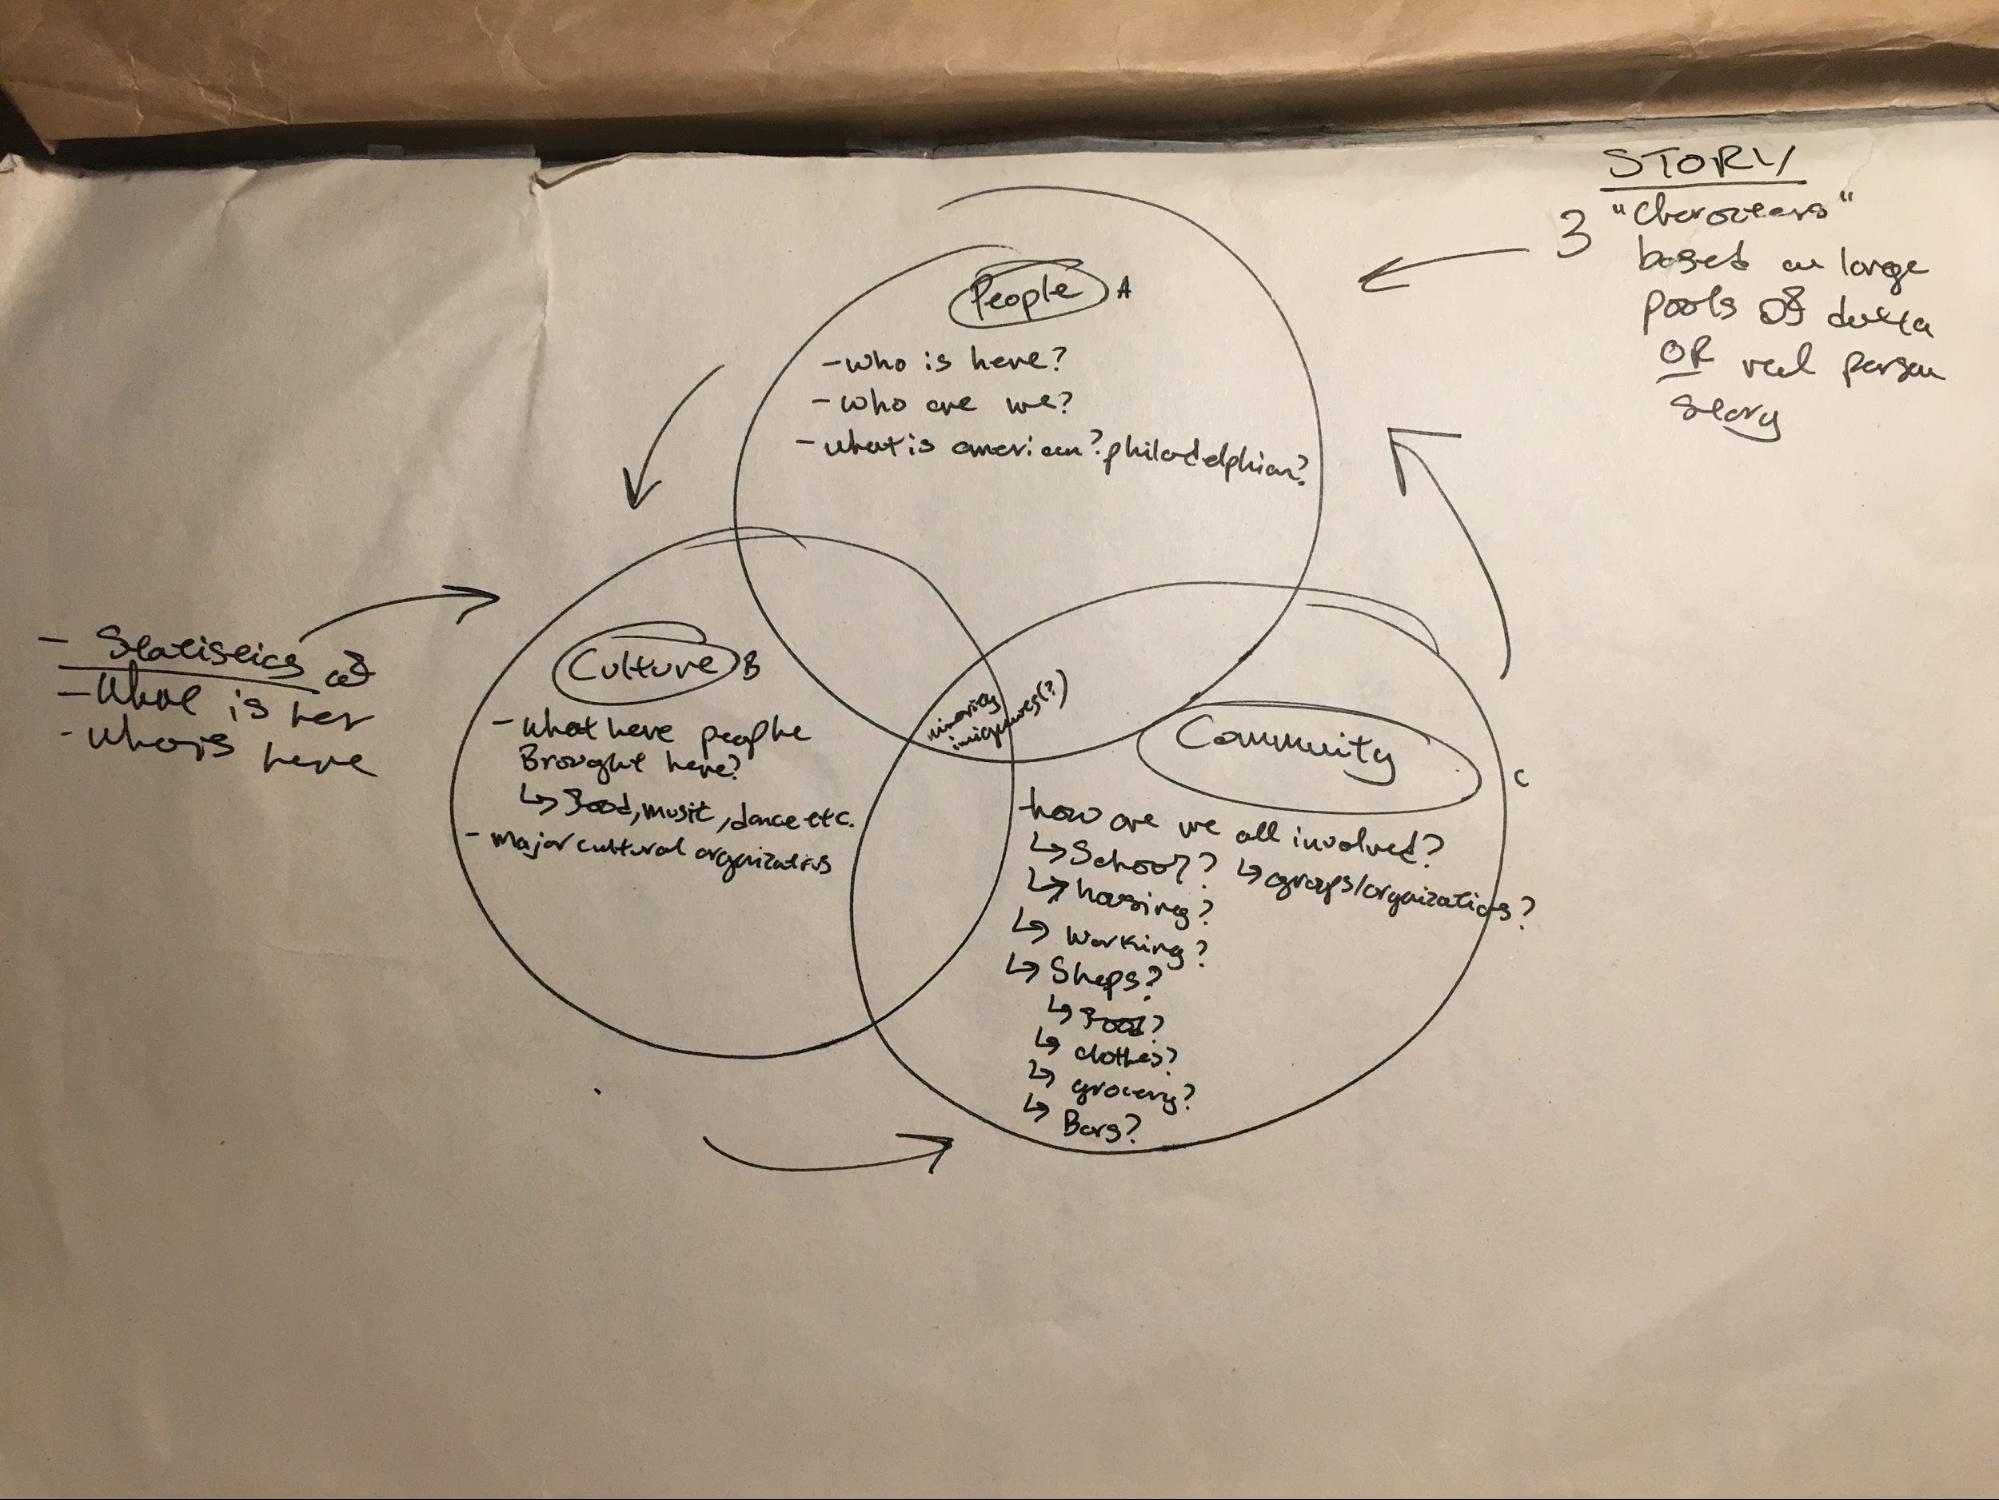 STORY
3 "Characters"
based on large
pools of data
OR real person
story
People A
- who is here?
- who are we?
- what is american? philadelphian?
- Statistics of
- What is her
- who is here
Culture B
- what have people
Brought here?
↳ Food, music, dance etc.
- major cultural organizations
minority
(?)
Community C
- how are we all involved?
↳ School? ↳ groups/organizations?
↳ housing?
↳ Working?
↳ Shops?
↳ Food?
↳ clothes?
↳ grocery?
↳ Bars?